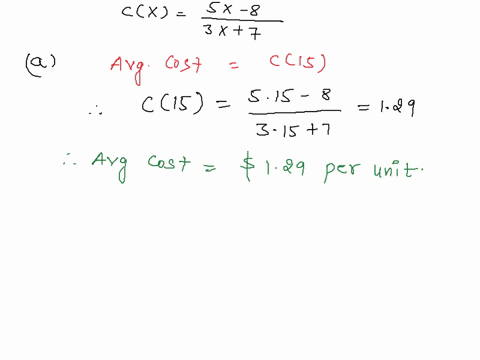 C(X) = 5x-8 / 3x+7
(a) Avg. Cost = C(15)
∴ C(15) = 5·15-8 / 3·15+7 = 1.29
∴ Avg Cost = $1.29 per unit.